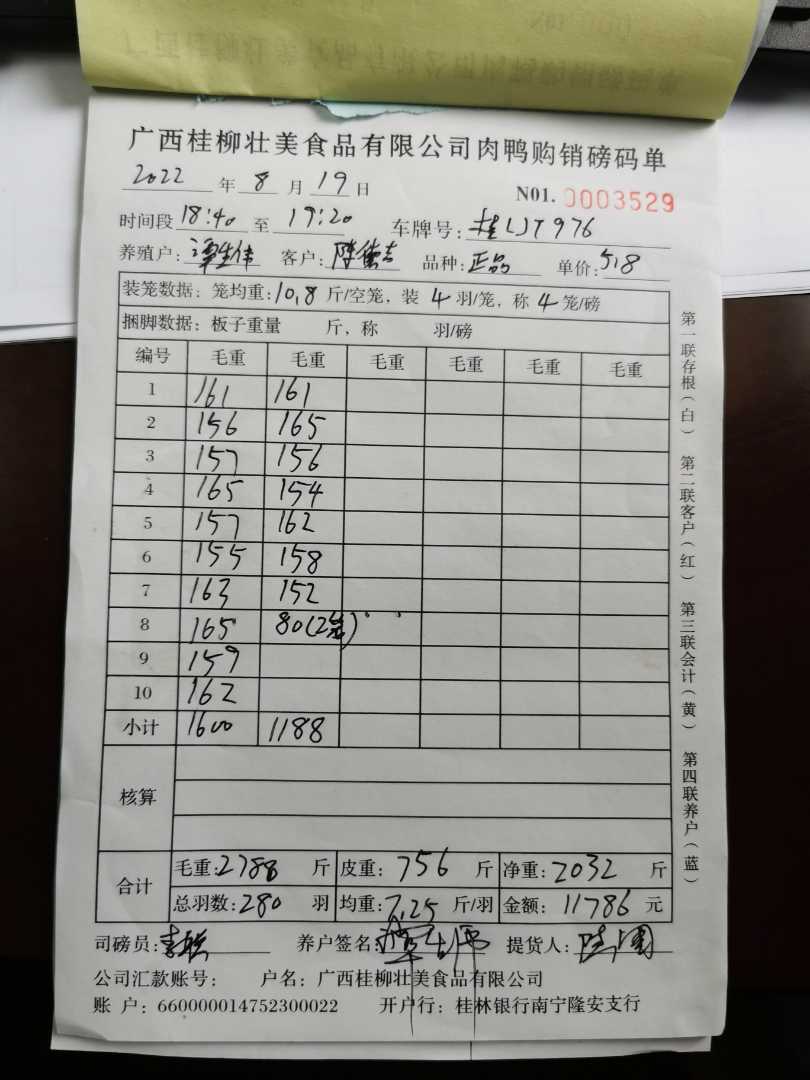 广西桂柳壮美食品有限公司肉鸭购销磅码单
2022 年 8 月 19 日 N01. 0003529
时间段 18:40 至 19:20 车牌号: 桂LJT976
养殖户: 客户: 品种: 正品 单价: 5.8
装笼数据: 笼均重: 10.8 斤/空笼, 装 4 羽/笼, 称 4 笼/磅
捆脚数据: 板子重量 斤, 称 羽/磅
编号 毛重 毛重 毛重 毛重 毛重 毛重
1 161 161
2 156 165
3 157 156
4 165 154
5 157 162
6 155 158
7 163 152
8 165 80(2笼)
9 159
10 162
小计 1600 1188
核算
合计
毛重: 2788 斤 皮重: 756 斤 净重: 2032 斤
总羽数: 280 羽 均重: 7.25 斤/羽 金额: 11786 元
司磅员: 养户签名: 提货人:
公司汇款账号: 户名: 广西桂柳壮美食品有限公司
账 户: 660000014752300022 开户行: 桂林银行南宁隆安支行
第一联存根(白) 第二联客户(红) 第三联会计(黄) 第四联养户(蓝)